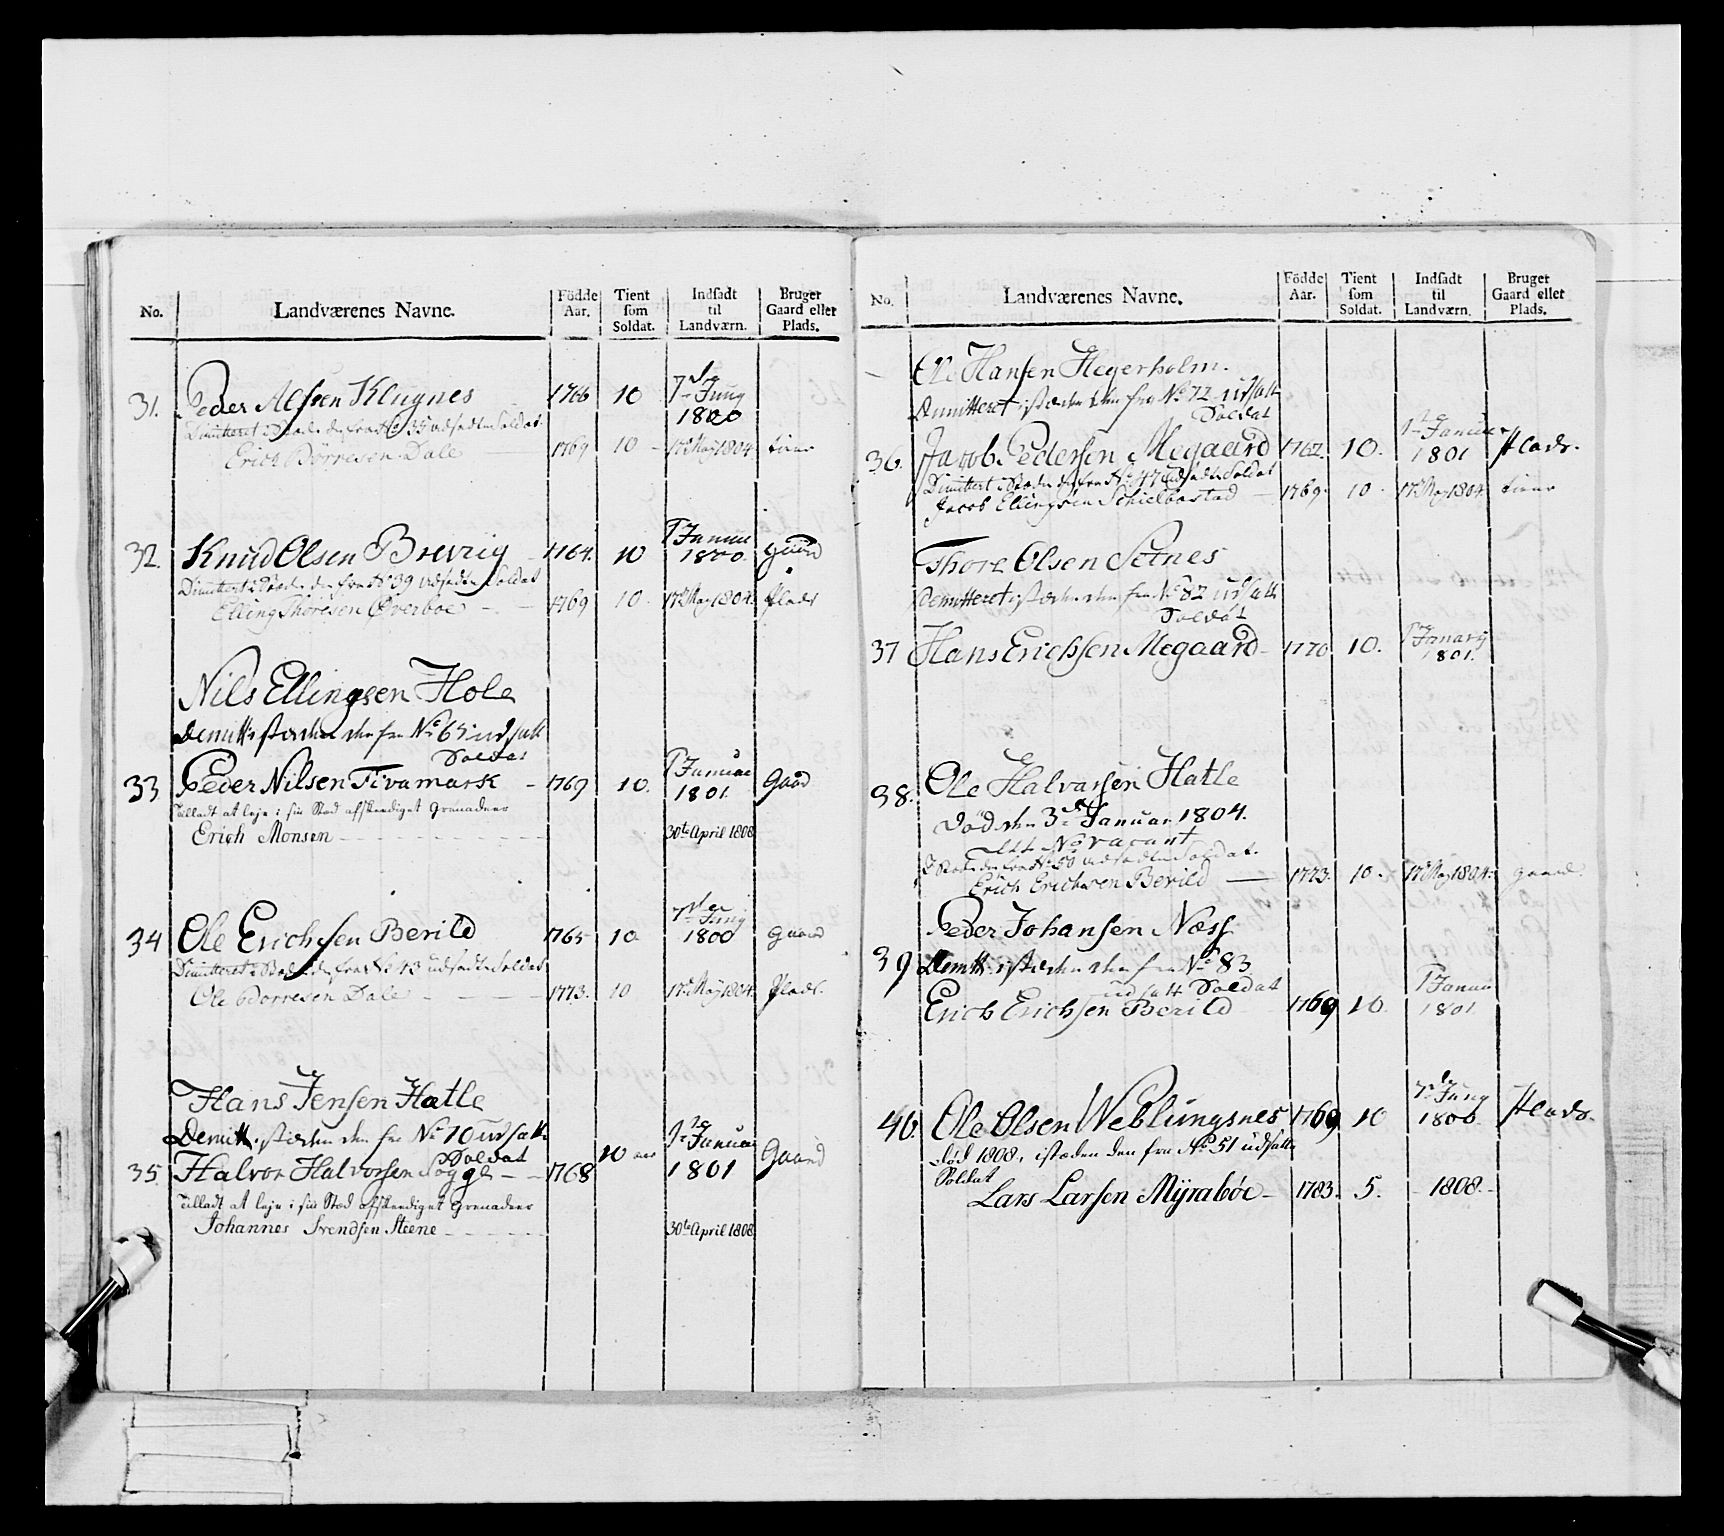 No. Landværenes Navne. Födde Aar. Tient som Soldat. Indsadt til Landværn. Bruger Gaard eller Plads.
31. Peder Alfsen Klugnes 1766 10 7de Juny 1800
Dimitteret i Stæde den fra No 35 udsadte Soldat
Erich Börresen Dale 1769 10 - 17de May 1804
32. Knud Olsen Brevig 1764. 10 1 Januar 1800. gaard
Dimittert i Stæde den fra No 39 udsadte Soldat
Elling Thoresen Øverboe - 1769 10. 17de May 1804. Plads
Nils Ellingsen Hole
Demitt. i stæden den fra No 65 udsatt
Soldat
33 Peder Nilsen Tivamark - 1769 10. 1 Januar 1801. Gaad
Tilladt at leje i sin Stæd afskediget Grenadeer
Erich Monsen 30te April 1808
34 Ole Erichsen Berild 1765 10 7de Juny 1800 gaard
Dimitteret i Stæde den fra No 43 udsadte Soldat
Ole Börresen Dale 1773. 10 17de May 1804. Plads.
Hans Jensen Hatle
Demitt. i stæden den fra No 70 udsatt
Soldat
35 Halvor Halvorsen Sogge - - 1768 10 aar 1te Januar 1801 Gaard
Tilladt at leje i sin Stæd afskeediget Grenadeer
Johannes Svendsen Steene 30te April 1808
No. Landværenes Navne. Födde Aar. Tient som Soldat. Indsadt til Landværn. Bruger Gaard eller Plads.
Ole Hansen Hegerholm.
Demitteret i stæden den fra No 72 udsatt
Soldat
36. Jacob Pedersen Megaard 1762. 10. 1ste Januar 1801 Plads.
Dimittert i Stæde den fra No 47 udsadte Soldat
Jacob Ellingsen Schielbostad - 1769. 10. 17de May 1804.
Thore Olsen Setnes
Demitteret i stæden den fra No 82 udsatt
Soldat
37 Hans Erichsen Megaard - 1770 10. 1 Januarÿ 1801.
38. Ole Halvorsen Hatle
Död den 3de Januar 1804.
No vacant
I Stæde den fra No 50 udsadte Soldat
Erich Erichsen Berild 1773. 10. 17de May 1804. gaard.
Peder Johansen Næss
39 Demitt. i stæden den fra No 83
udsatt Soldat
Erich Erichsen Berild 1769 10 1 Januar 1801
40. Ole Olsen Weblungsnes 1769 10 7de Juny 1800 Plads.
död 1808., i stæden den fra No 51 udsatte
Soldat
Lars Larsen Mÿrabøe - 1783. 5. - 1808. -